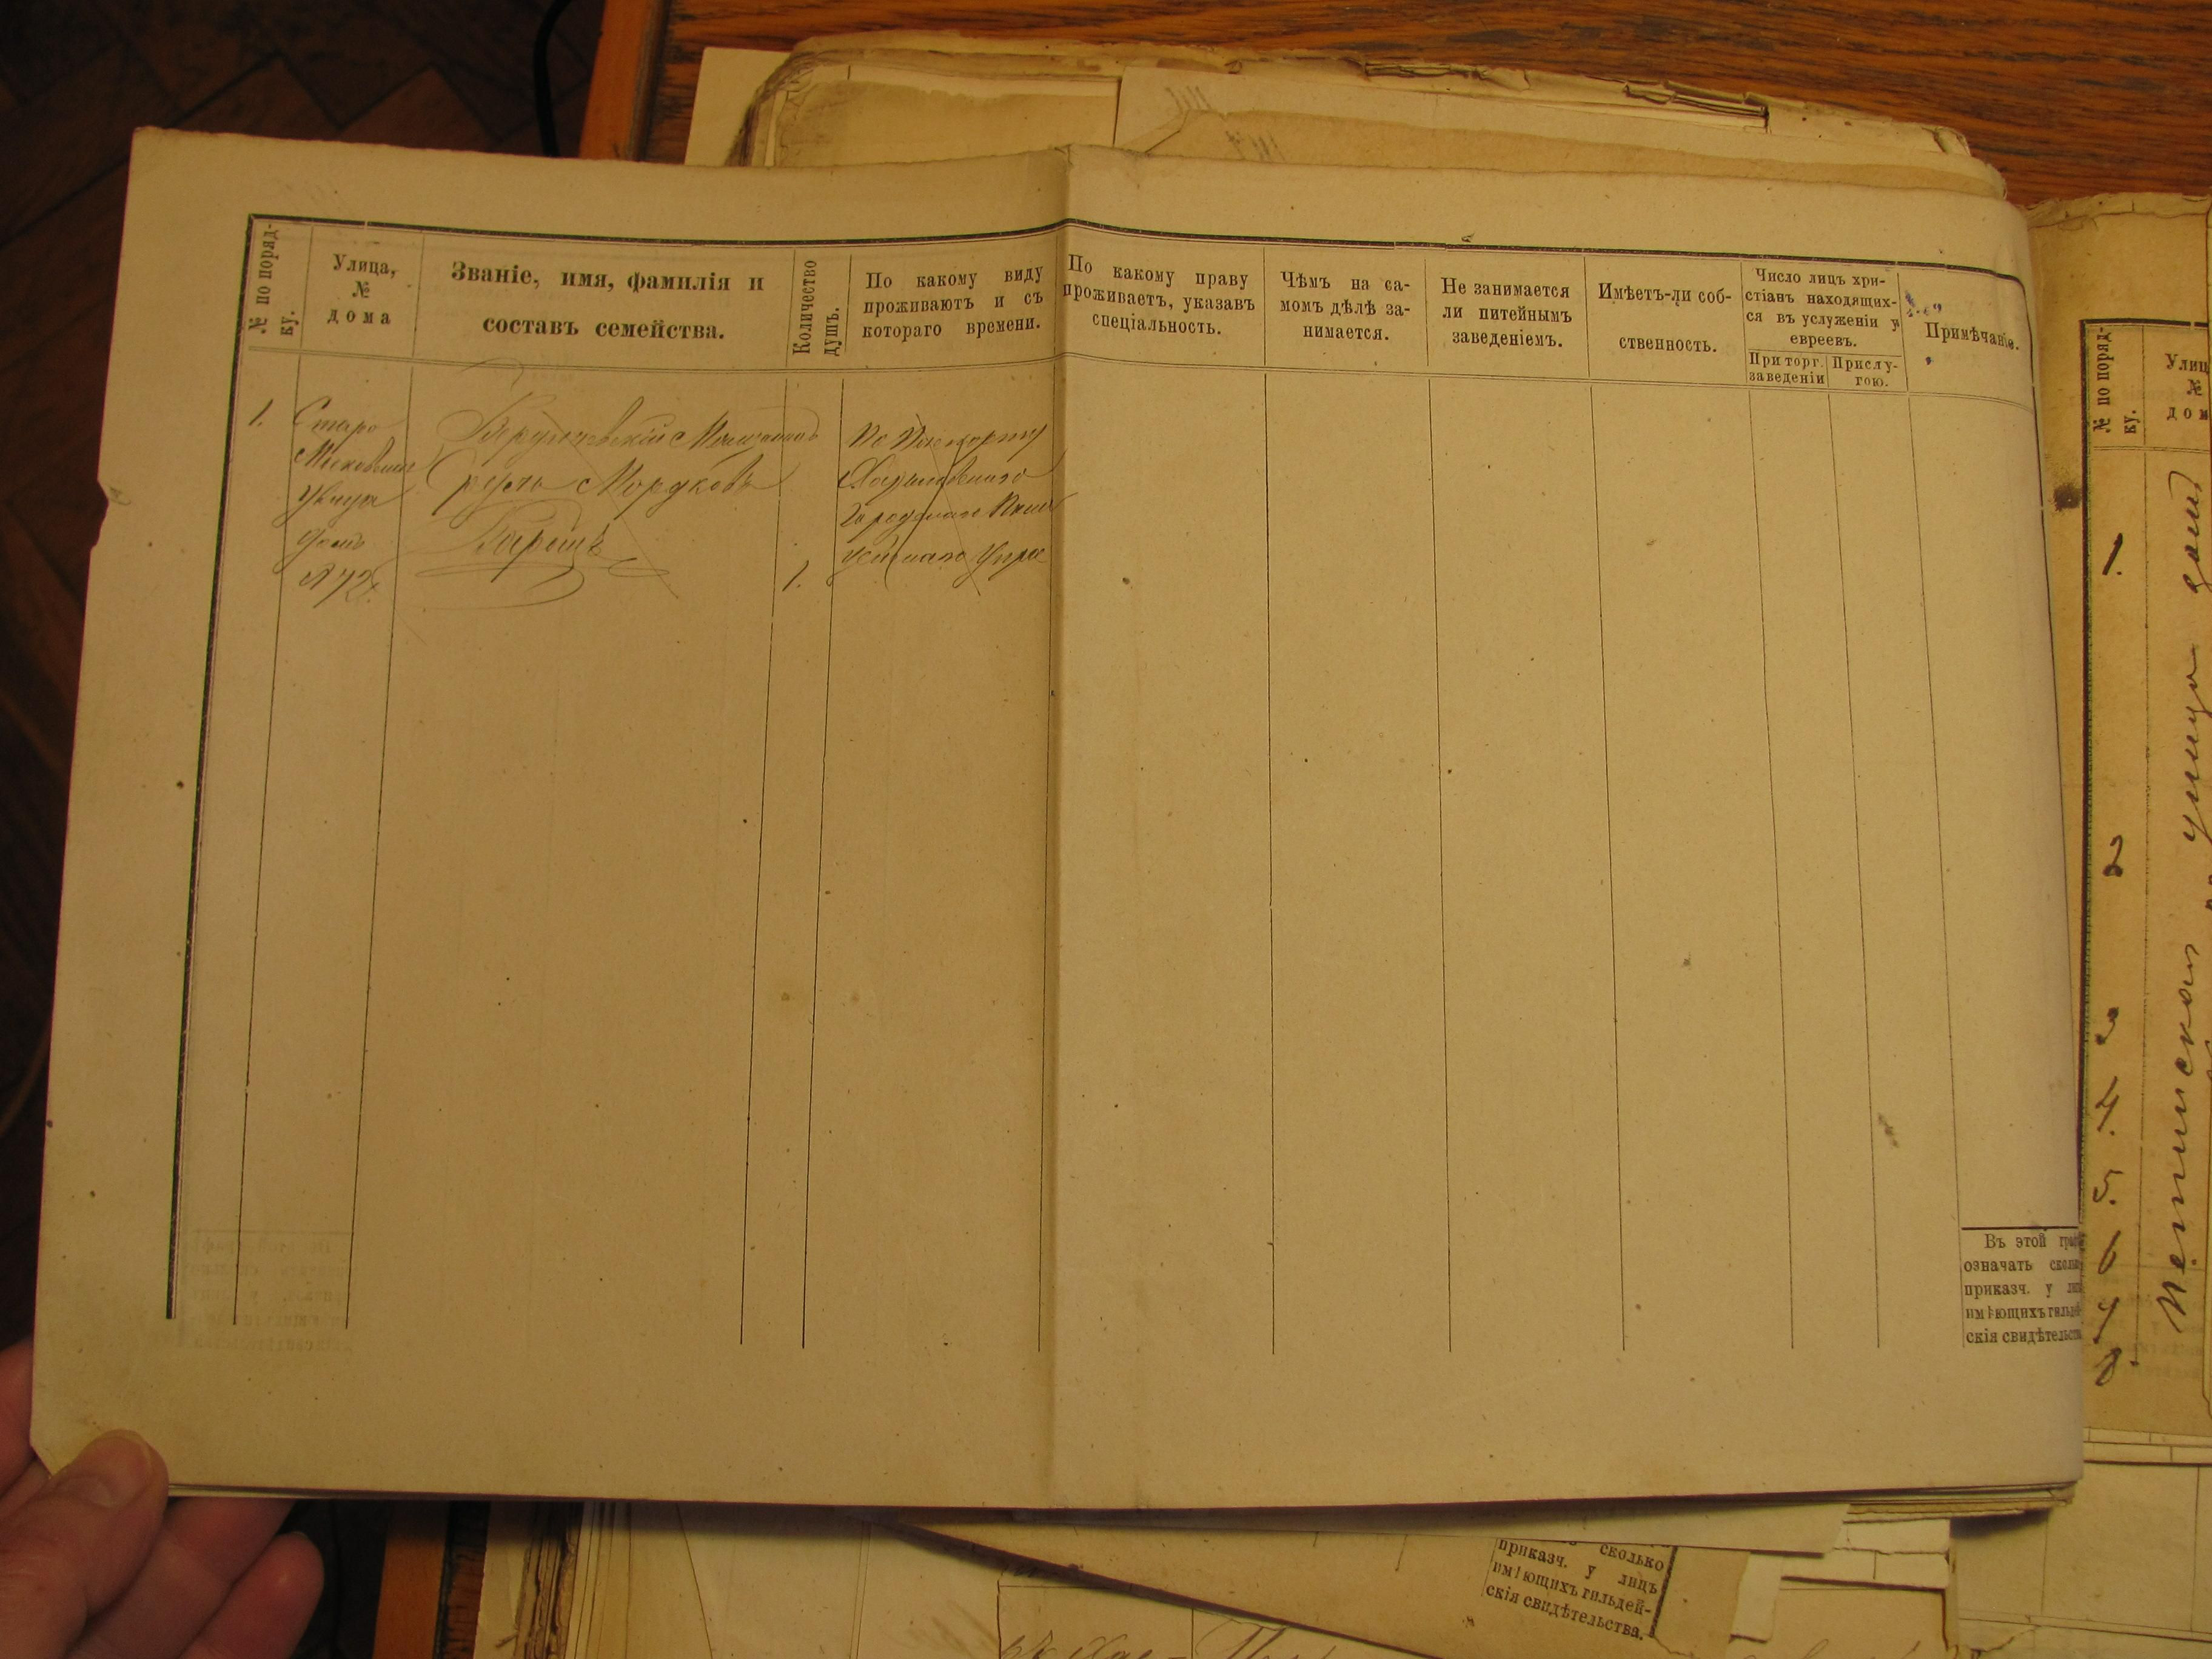 № по поряд-
ку.
Улица,
№
дома
Званіе, имя, фамилія и
составъ семейства.
Количество
душъ.
По какому виду
проживаютъ и съ
котораго времени.
По какому праву
проживаетъ, указавъ
спеціальность.
Чѣмъ на са-
момъ дѣлѣ за-
нимается.
Не занимается
ли питейнымъ
заведеніемъ.
Имѣетъ-ли соб-
ственность.
Число лицъ хри-
стіанъ находящих-
ся въ услуженіи у
евреевъ.
При торг.
заведеніи
Прислу-
гою.
Примѣчаніе.
1.
Старо
Московская
улица
домъ
Мордковъ
1.
По Паспорту
Въ этой
означать
приказч. у
имѣющихъ
скія свидѣтельства
№ по поряд-
ку.
1.
2
3
4.
5.
6
7
8.
улицы домъ
сколько
приказч. у лицъ
имѣющихъ гильдей-
скія свидѣтельства.